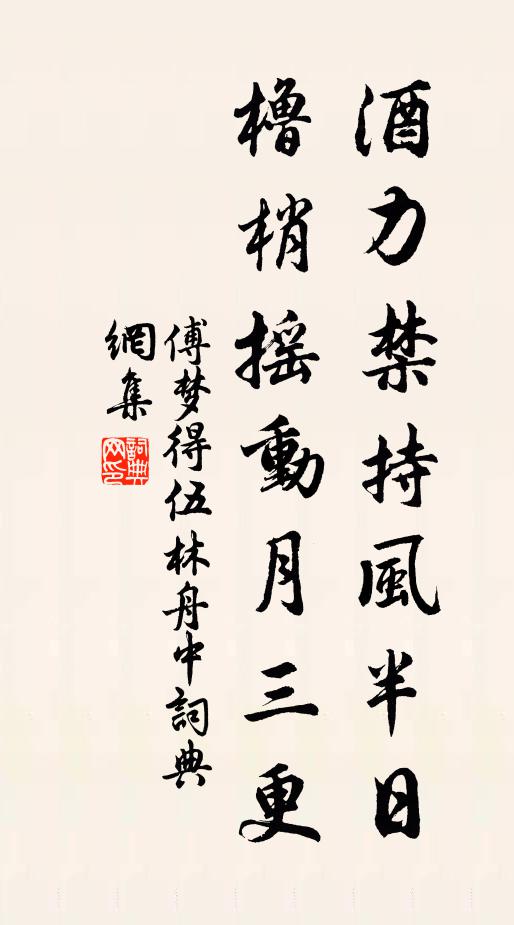 酒力禁持風半日
櫓梢搖動月三更
傅梦得伍林舟中詞典
網集
詞典
网印